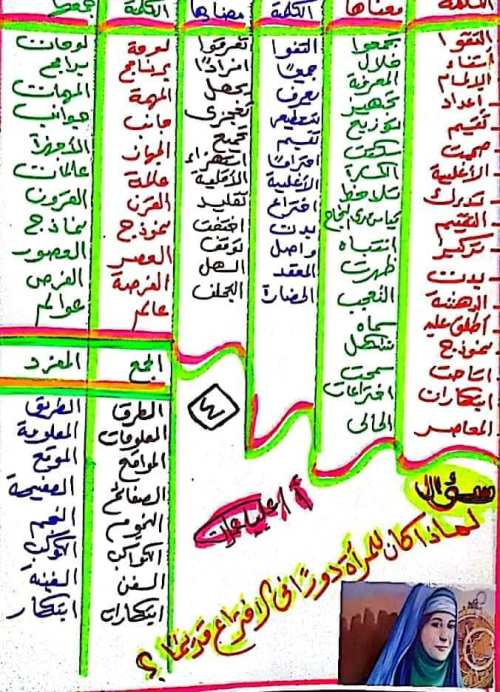 الكلمة معناها الكلمة مضادها الكلمة جمعها
التقوا تجمعوا التقوا تفرقوا لوحة لوحات
أثناء خلال جميعًا انفرادًا برنامج برامج
الإلمام المعرفة يعرف يجهل المهمة المهمات
إعداد تجهيز جانب جوانب
تقييم تقسيم تجميع الجهاز الأجهزة
صمتت سكتت احترامًا استهزاء عالمة عالمات
الأغلبية الكثرة الأغلبية الأقلية القرن القرون
تدرك تلاحظ اختراع تقليد نموذج نماذج
التقييم قياس مدى النجاح بدت اختفت العصر العصور
تركيز انتباه واصل توقف الفرصة الفرص
بدت ظهرت المعقد السهل عالم عوالم
الدهشة التعجب الحضارة التخلف
أطلق عليه سماه
نموذج شكل
أتاحت سمحت
ابتكارات اختراعات
المعاصر الحالي
الجمع المفرد
الطرق الطريق
المعلومات المعلومة
المواقع الموقع
الصفائح الصفيحة
النجوم النجم
الكواكب الكوكب
السفن السفينة
ابتكارات ابتكار
٤
سؤال
لماذا كان للمرأة دورًا في الاختراع قديمًا؟